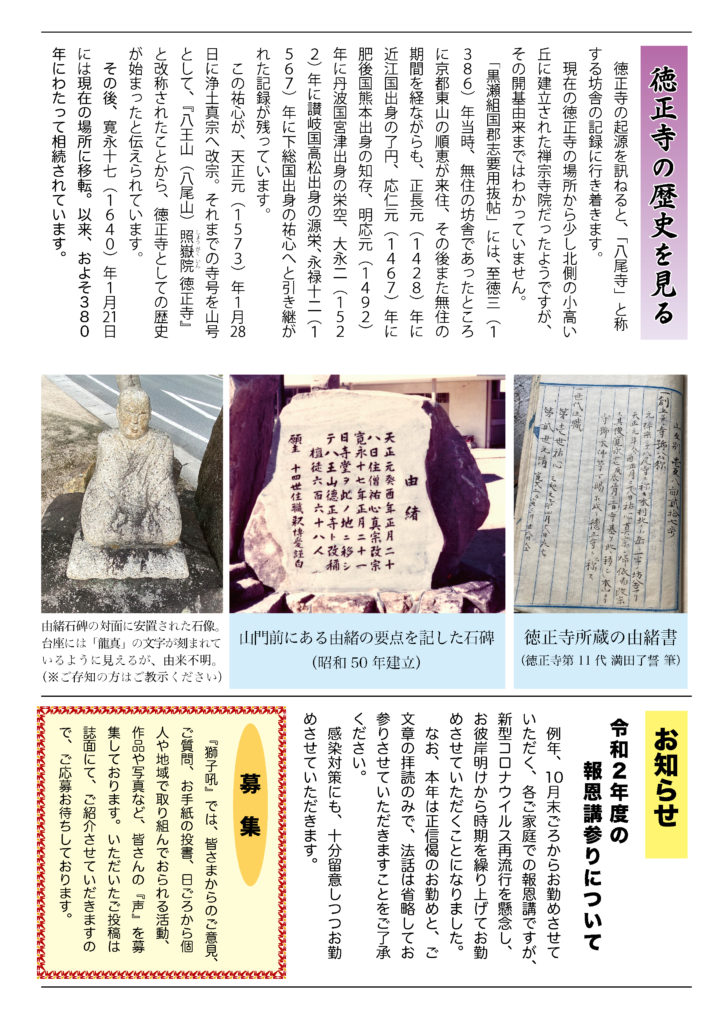 徳正寺の歴史を見る
徳正寺の起源を訊ねると、「八尾寺」と称
する坊舎の記録に行き着きます。
現在の徳正寺の場所から少し北側の小高い
丘に建立された禅宗寺院だったようですが、
その開基由来まではわかっていません。
「黒瀬組国郡志要用抜帖」には、至徳三（１
３８６）年当時、無住の坊舎であったところ
に京都東山の順恵が来住、その後また無住の
期間を経ながらも、正長元（１４２８）年に
近江国出身の了円、応仁元（１４６７）年に
肥後国熊本出身の知存、明応元（１４９２）
年に丹波国宮津出身の栄空、大永二（１５２
２）年に讃岐国高松出身の源栄、永禄十二（１
５６７）年に下総国出身の祐心へと引き継が
れた記録が残っています。
この祐心が、天正元（１５７３）年１月28
日に浄土真宗へ改宗。それまでの寺号を山号
として、『八王山（八尾山）照嶽院 徳正寺』
と改称されたことから、徳正寺としての歴史
が始まったと伝えられています。
その後、寛永十七（１６４０）年１月21日
には現在の場所に移転。以来、およそ３８０
年にわたって相続されています。
由緒
天正元癸酉年正月二十
八日住僧祐心真宗改宗
寛永十七年正月二十一
日寺堂ヲ此ノ地ニ移シ
テ八王山徳正寺ト改稱
檀徒六百六十八人
願主 十四世住職
徳正寺所蔵の由緒書
（徳正寺第 11 代 満田了誓 筆）
山門前にある由緒の要点を記した石碑
（昭和 50 年建立）
由緒石碑の対面に安置された石像。
台座には「龍真」の文字が刻まれて
いるように見えるが、由来不明。
（※ご存知の方はご教示ください）
お知らせ
令和２年度の
報恩講参りについて
例年、10月末ごろからお勤めさせて
いただく、各ご家庭での報恩講ですが、
新型コロナウイルス再流行を懸念し、
お彼岸明けから時期を繰り上げてお勤
めさせていただくことになりました。
なお、本年は正信偈のお勤めと、ご
文章の拝読のみで、法話は省略してお
参りさせていただきますことをご了承
ください。
感染対策にも、十分留意しつつお勤
めさせていただきます。
募集
『獅子吼』では、皆さまからのご意見、
ご質問、お手紙の投書、日ごろから個
人や地域で取り組んでおられる活動、
作品や写真など、皆さんの『声』を募
集しております。いただいたご投稿は
誌面にて、ご紹介させていだきますの
で、ご応募お待ちしております。